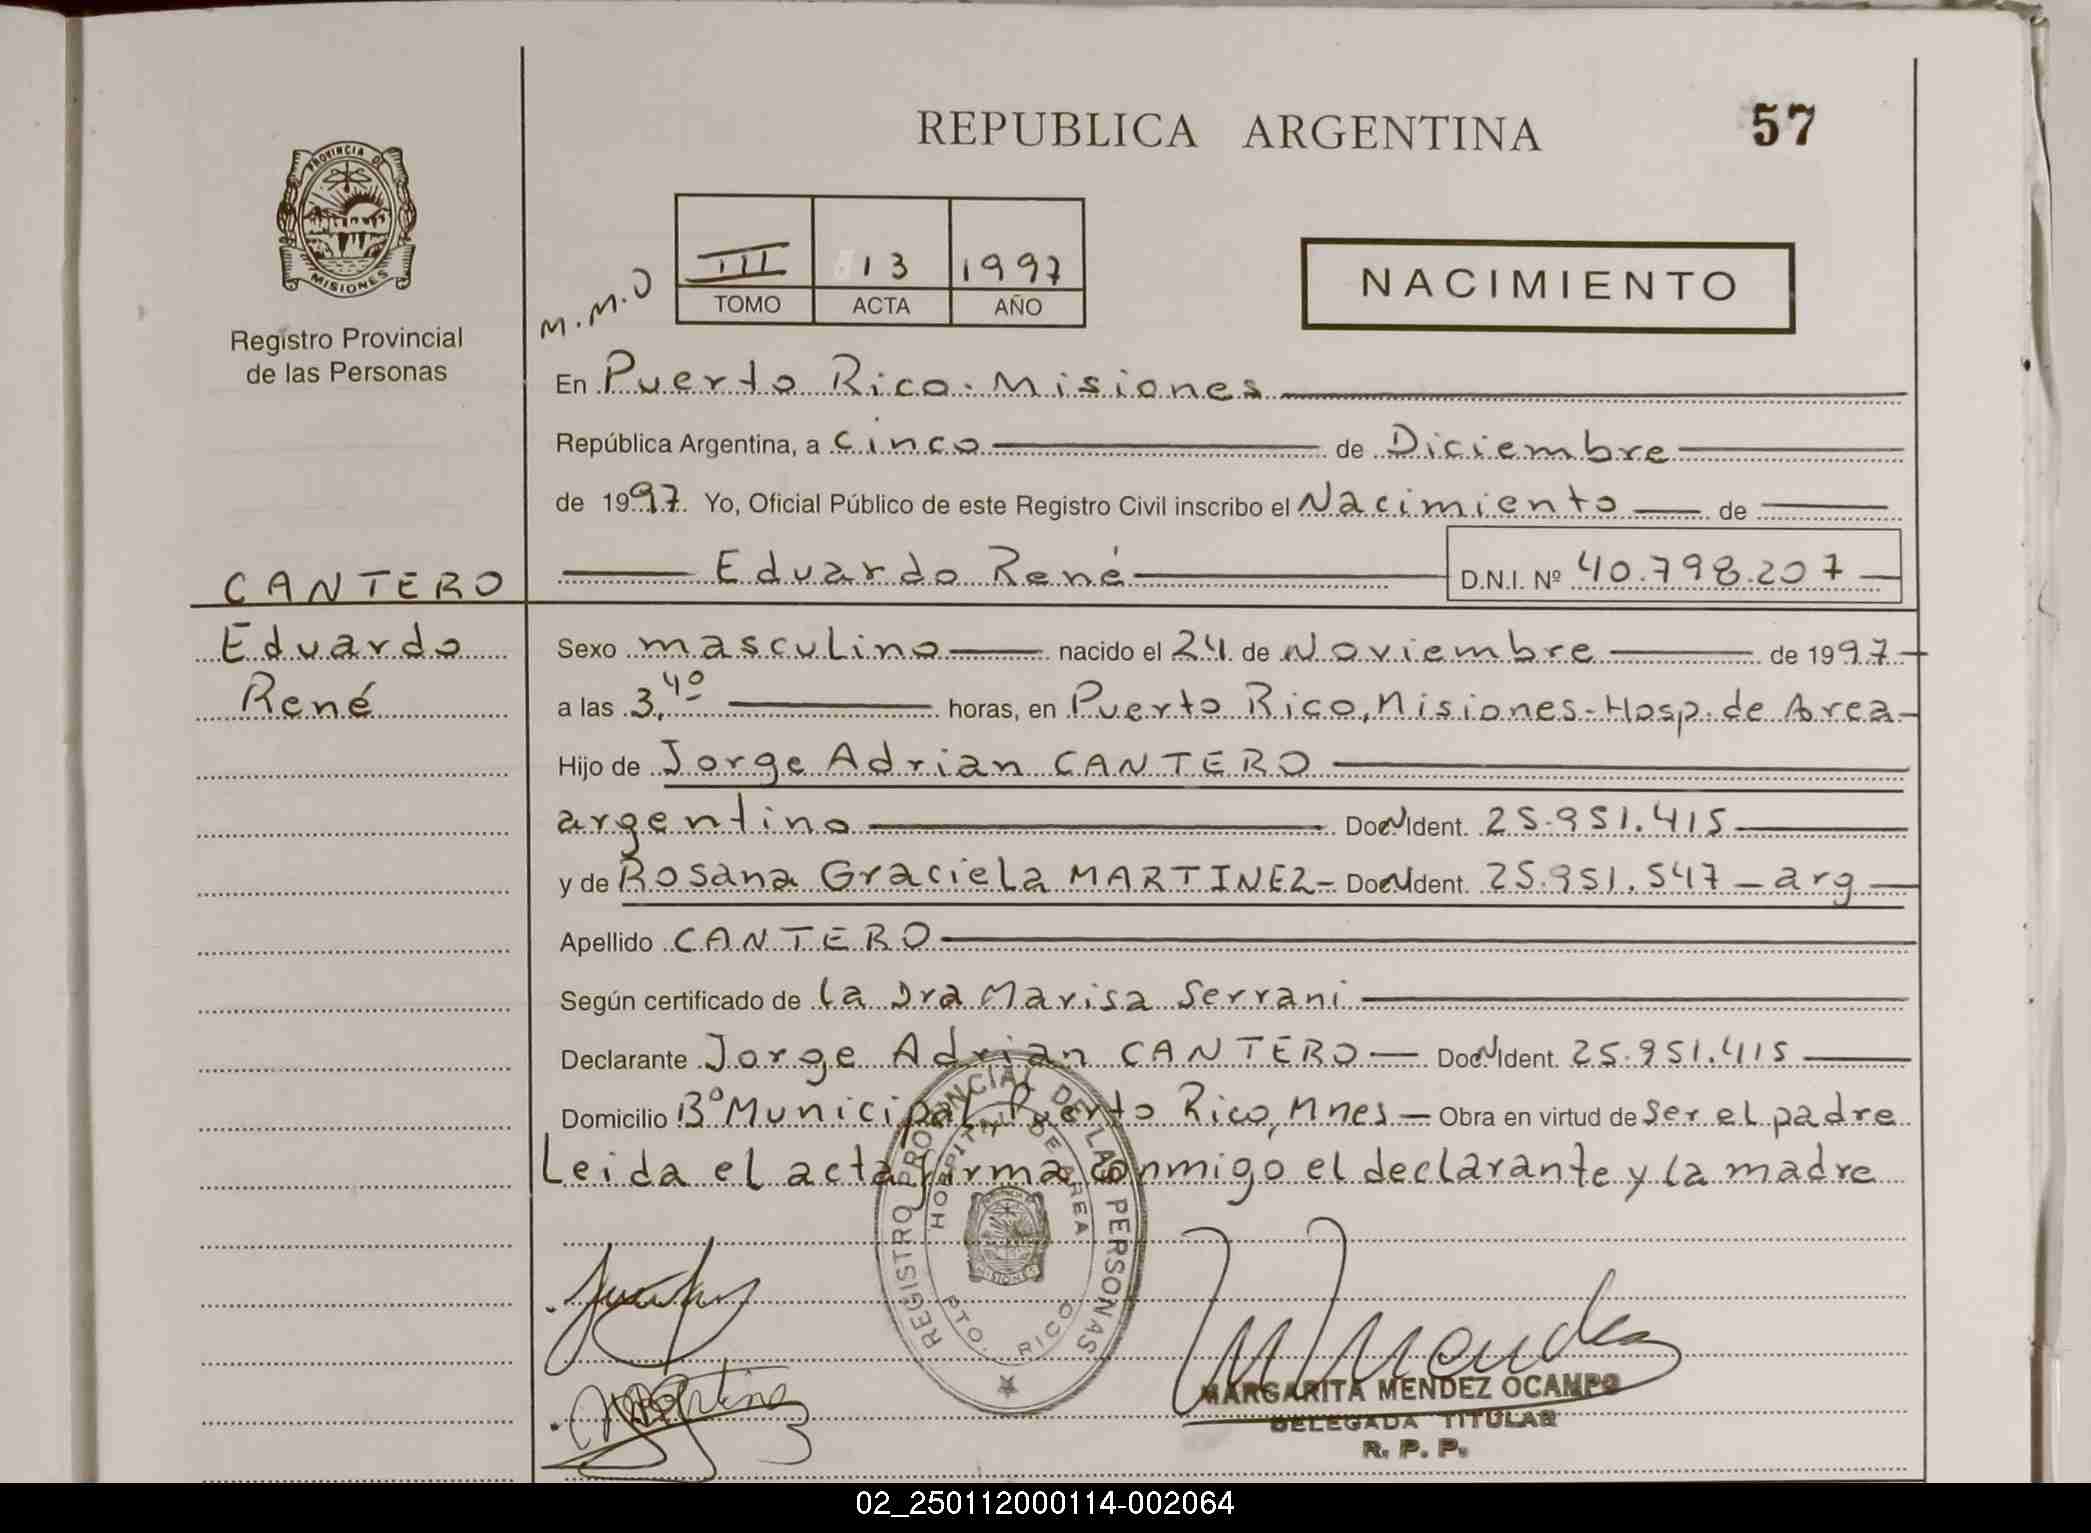 REPUBLICA ARGENTINA
57
PROVINCIA DE
MISIONES
Registro Provincial
de las Personas
M.M.O
III 13 1997
TOMO ACTA AÑO
NACIMIENTO
En Puerto Rico. Misiones
República Argentina, a cinco de Diciembre
de 1997. Yo, Oficial Público de este Registro Civil inscribo el Nacimiento de
Eduardo René D.N.I. Nº 40.798.207
CANTERO
Eduardo
René
Sexo masculino nacido el 24 de Noviembre de 1997
a las 3,40 horas, en Puerto Rico, Misiones-Hosp. de Area
Hijo de Jorge Adrian CANTERO
argentino Doc N Ident. 25.951.415
y de Rosana Graciela MARTINEZ- Doc N Ident. 25.951.547 - arg
Apellido CANTERO
Según certificado de la Dra Marisa Serrani
Declarante Jorge Adrian CANTERO Doc N Ident. 25.951.415
Domicilio Bº Municipal Puerto Rico, Mnes Obra en virtud de ser el padre
Leida el acta firma conmigo el declarante y la madre
REGISTRO PROVINCIAL DE LAS PERSONAS
HOSPITAL DE AREA
PTO. RICO
MISIONES
M Mendez
MARGARITA MENDEZ OCAMPO
DELEGADA TITULAR
R. P. P.
02_250112000114-002064